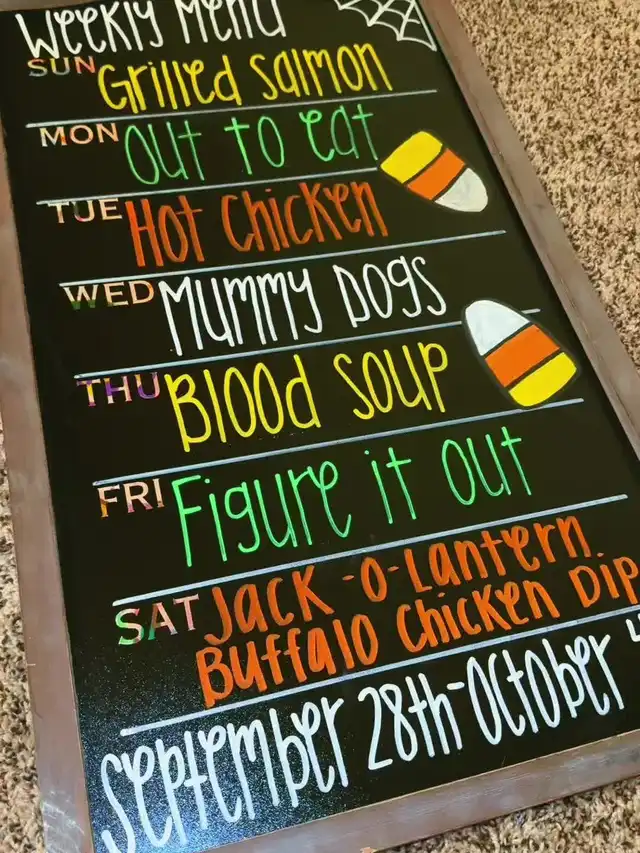 Weekly Menu
SUN Grilled Salmon
MON Out to eat
TUE Hot Chicken
WED Mummy Dogs
THU Blood Soup
FRI Figure it out
SAT Jack-O-Lantern
Buffalo Chicken Dip
September 28th-October